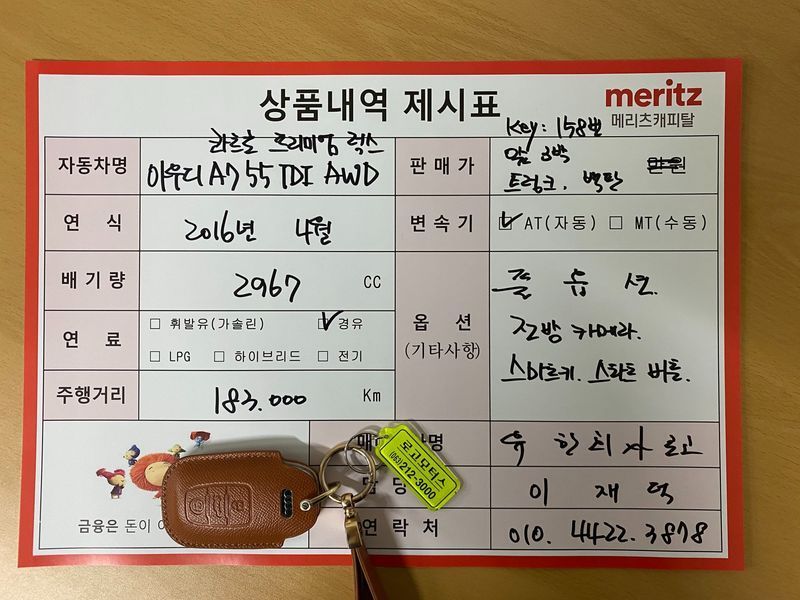 상품내역 제시표
meritz
메리츠캐피탈
자동차명
콰트로 프리미엄 럭스
아우디 A7 55 TDI AWD
판매가
Key: 158번
트렁크.
만원
연 식
2016년 4월
변속기
AT(자동) MT(수동)
배기량
2967 CC
연 료
휘발유(가솔린) 경유
LPG 하이브리드 전기
옵 션
(기타사항)
풀 옵션.
전방 카메라.
스마트키. 스타트 버튼.
주행거리
183.000 Km
로고모터스
(063)212-3000
이 재 덕
금융은 돈이
연 락 처
010. 4422. 3878